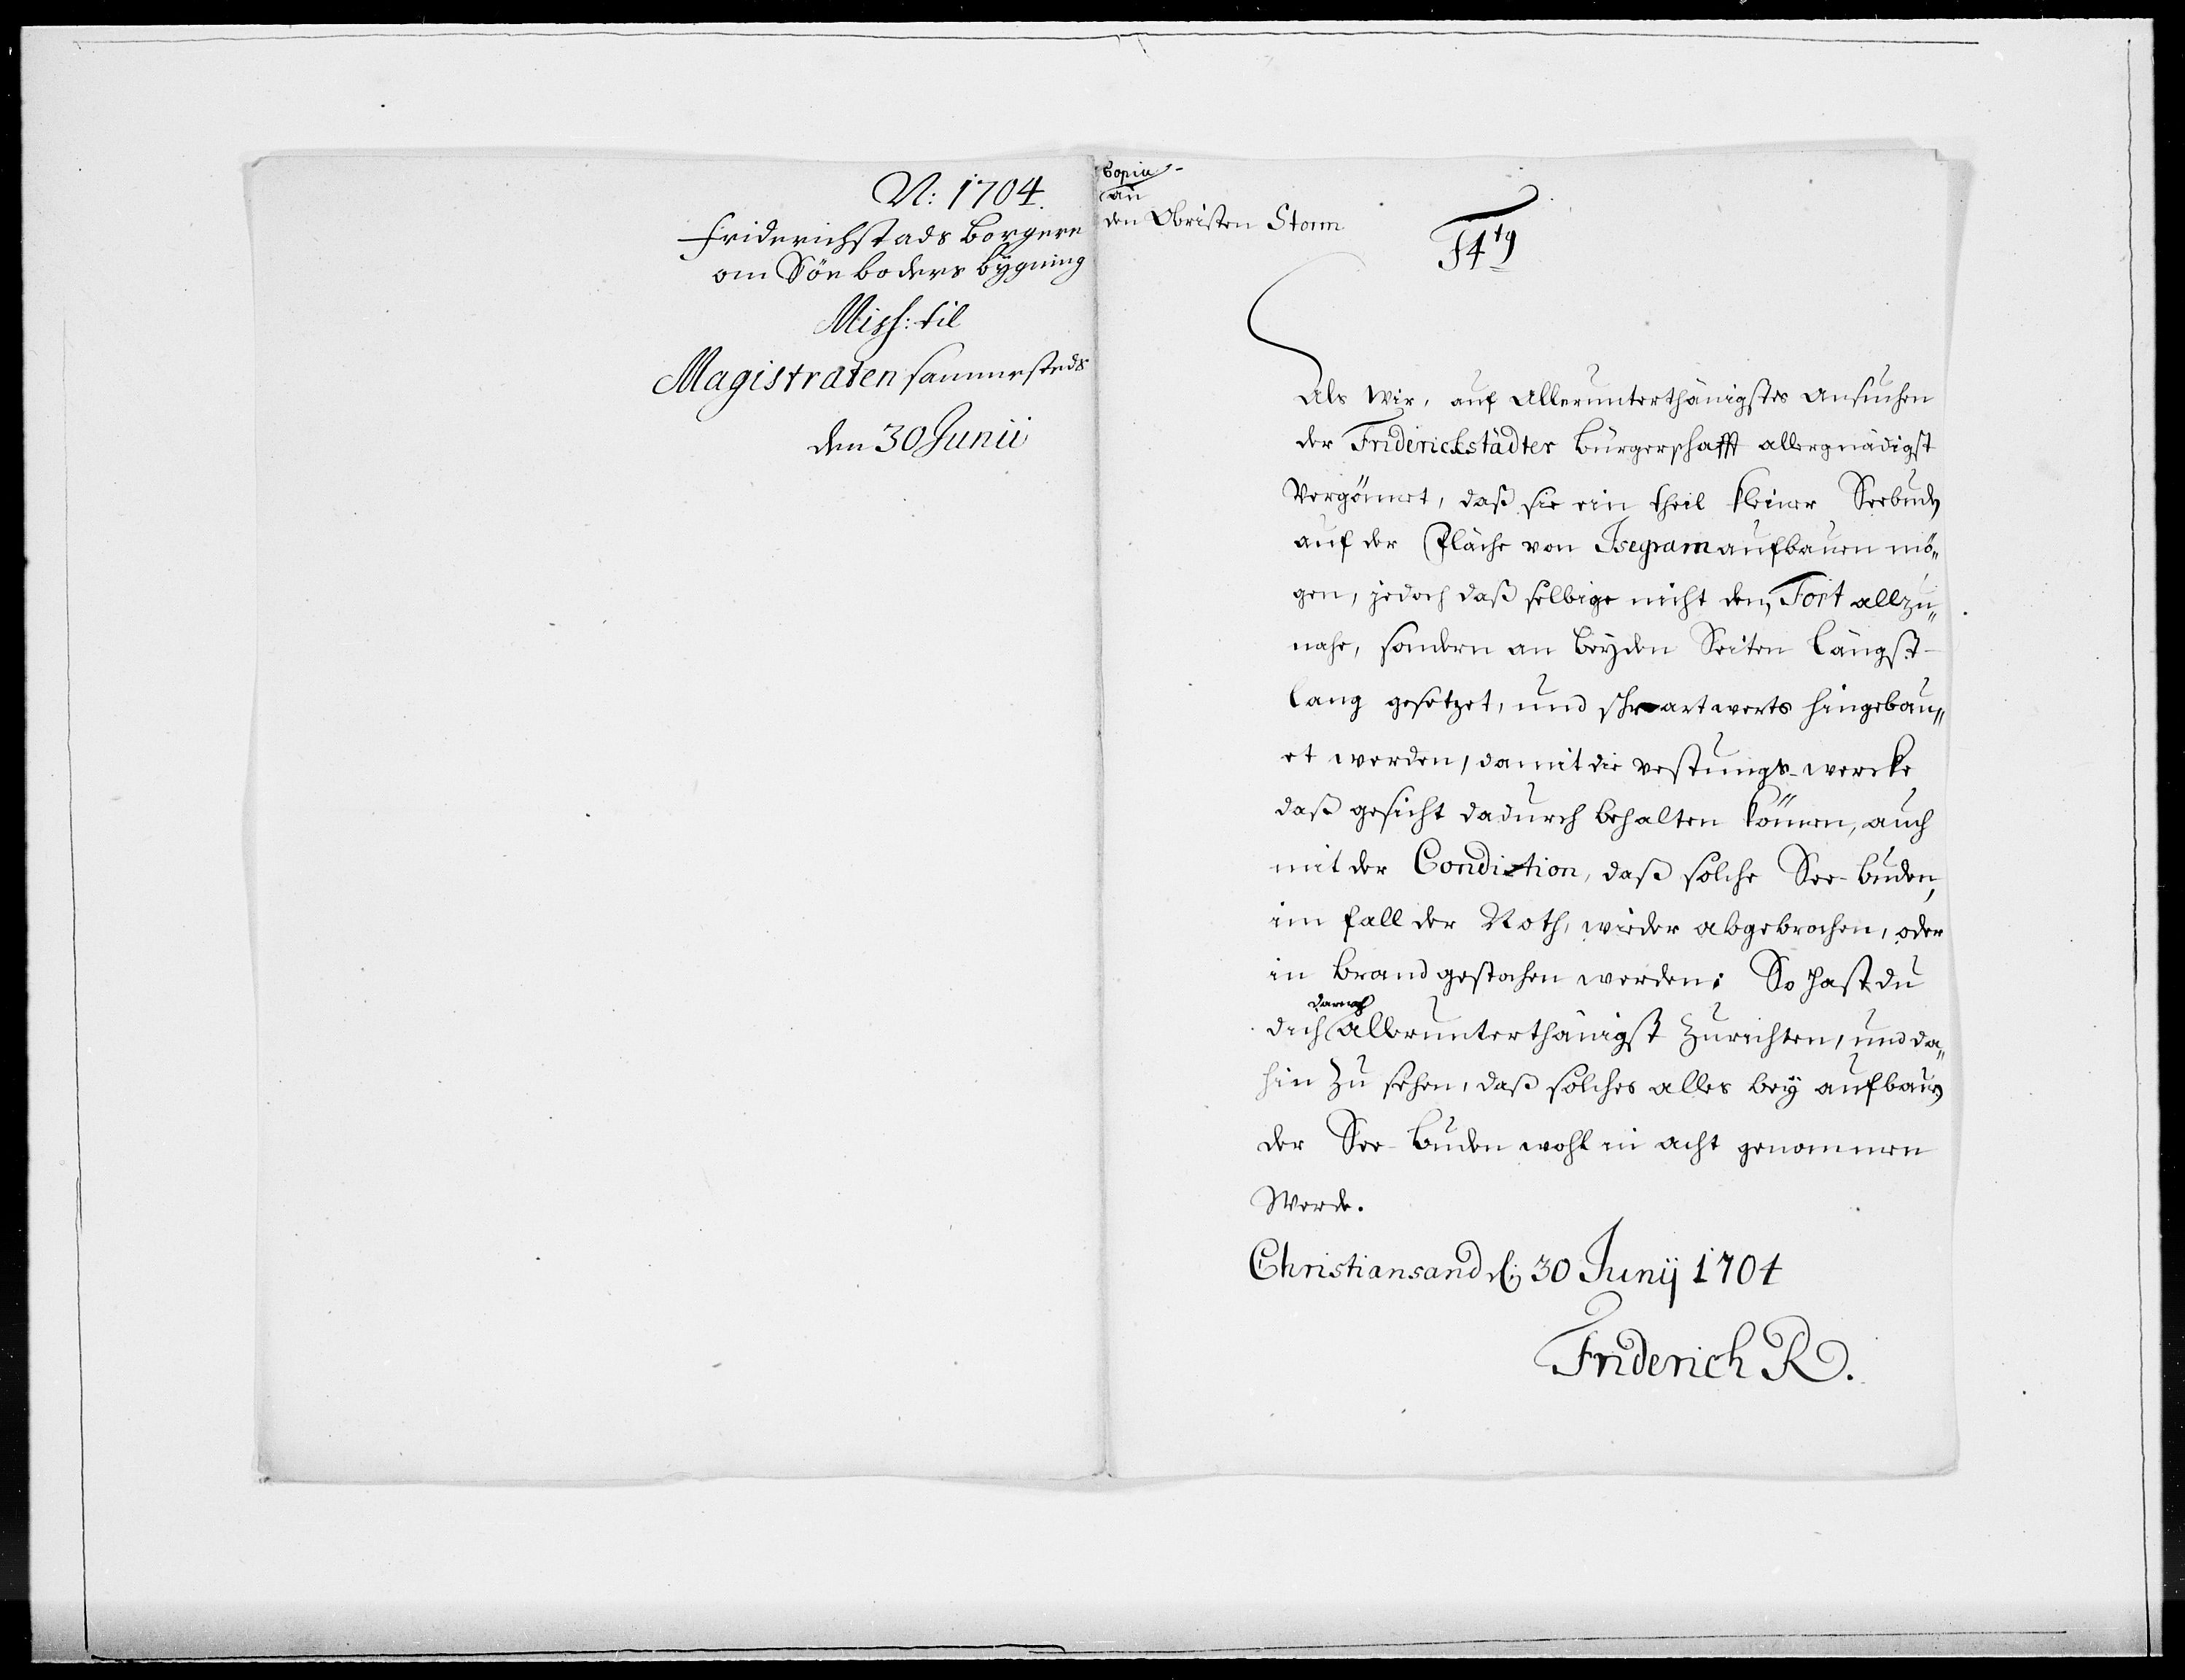 N: 1704.
Friderichstads Borgere
om Söe boders bÿgning
Miss: til
Magistraten sammesteds
den 30 Junii
Copia
an
den Obristen Storm
F4tg
Als Wir, auf Allerunterthänigstes ansuchen
der Friderichstädter Bürgerschafft allergnädigst
Vergönnet, daß sie ein theil kleiner Seebuden
auf der Fläche von Isegram aufbauen mö„
gen, jedoch daß selbige nicht dem Fort allzu„
nahe, sondern an beyden Seiten längst
lang gesetzet, und wertz hingebau„
et werden, damit die vestungs-wercke
daß gesicht dadurch behalten können, auch
mit der Condition, daß solche See-buden,
im fall der Noth, wieder abgebrochen, oder
in brand gestochen werden: So hastu du
darnach
dich allerunterthänigst zu richten, und da„
hin zu sehen, daß solches alles beÿ aufbau
der See-buden wohl in acht genommen
Werde.
Christiansand d: 30 Junij 1704
Friderich R.